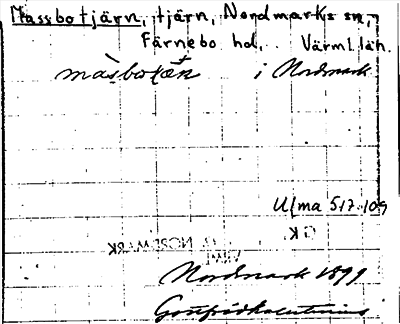 Massbotjärn, tjärn, Nordmarks sn,
Färnebo hd, Värml. län.
i Nordmark
Ulma 517:109
G.K.
NORDMARK
Nordmark 1899
Gottfrid Kallstenius